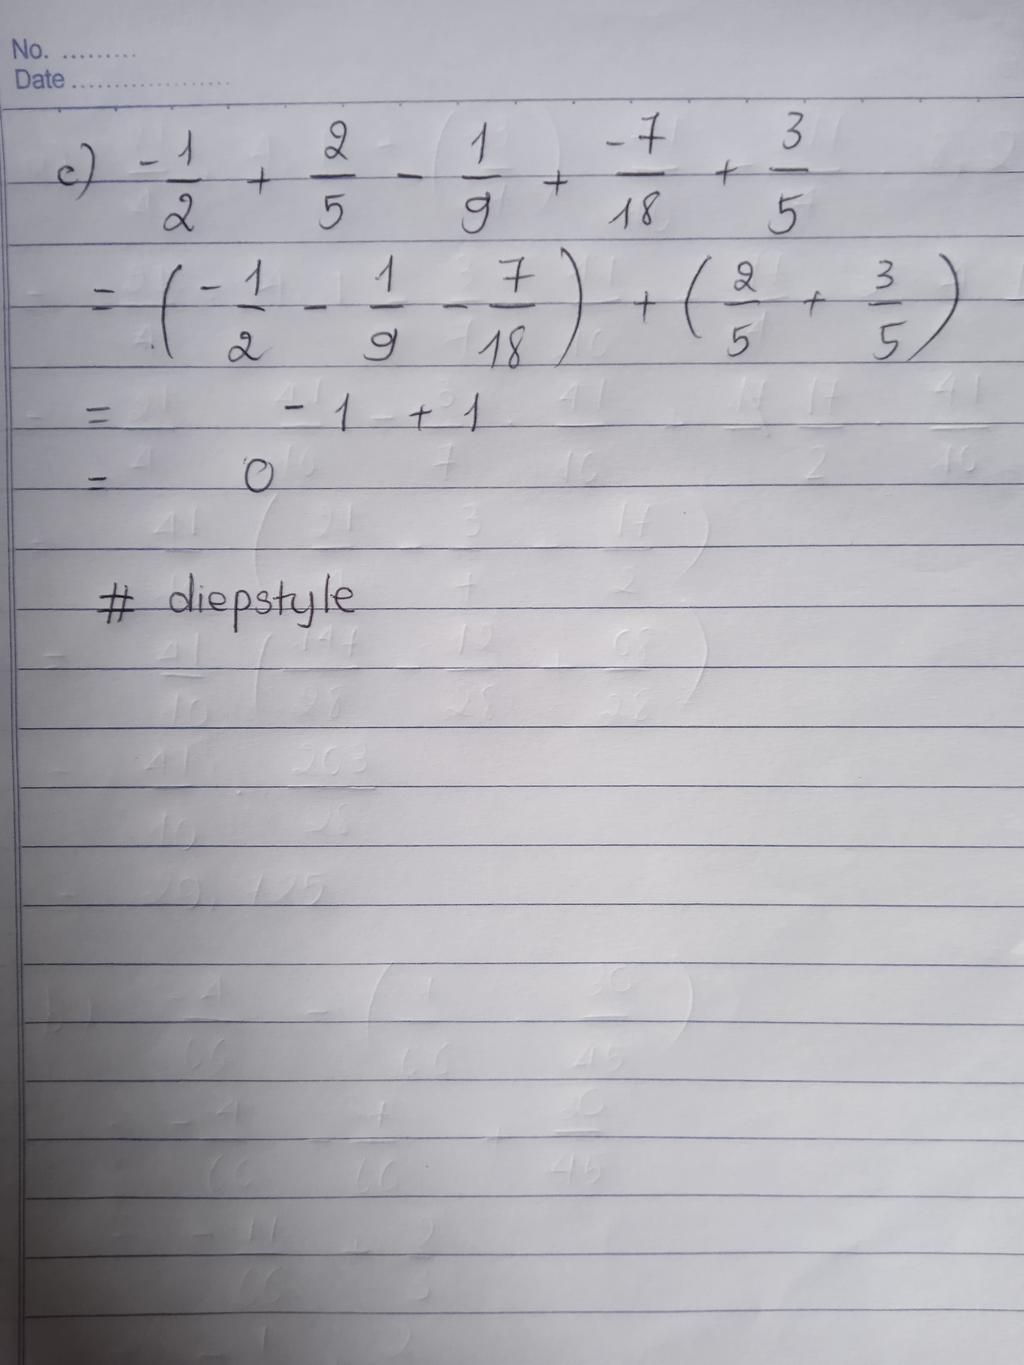 No. .........
Date ...................
c) -1/2 + 2/5 - 1/9 + -7/18 + 3/5
= (-1/2 - 1/9 - 7/18) + (2/5 + 3/5)
= - 1 + 1
= 0
# diepstyle